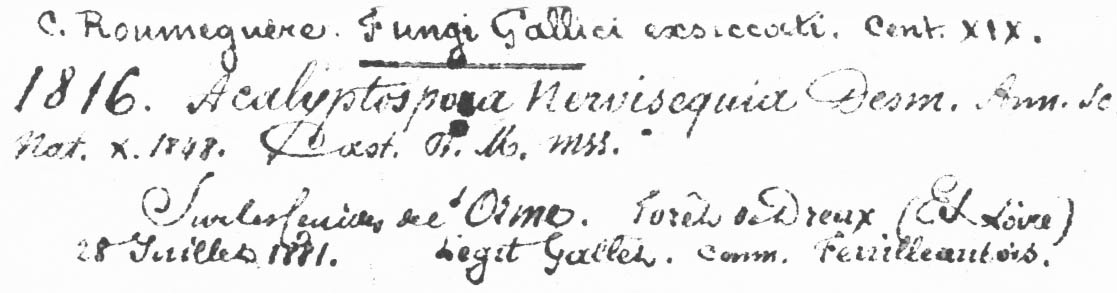 C. Roumeguère. Fungi Gallici exsiccati. Cent. XIX.
1816. Acalyptospora Nervisequia Desm. Ann. Sc
Nat. X. 1848. Cast. P. M. mss.
Sur les feuilles de l'Orme. Forêt de Dreux (Et Loire)
28 Juillet 1881. Legit Gallet. comm. Feuilleaubois.